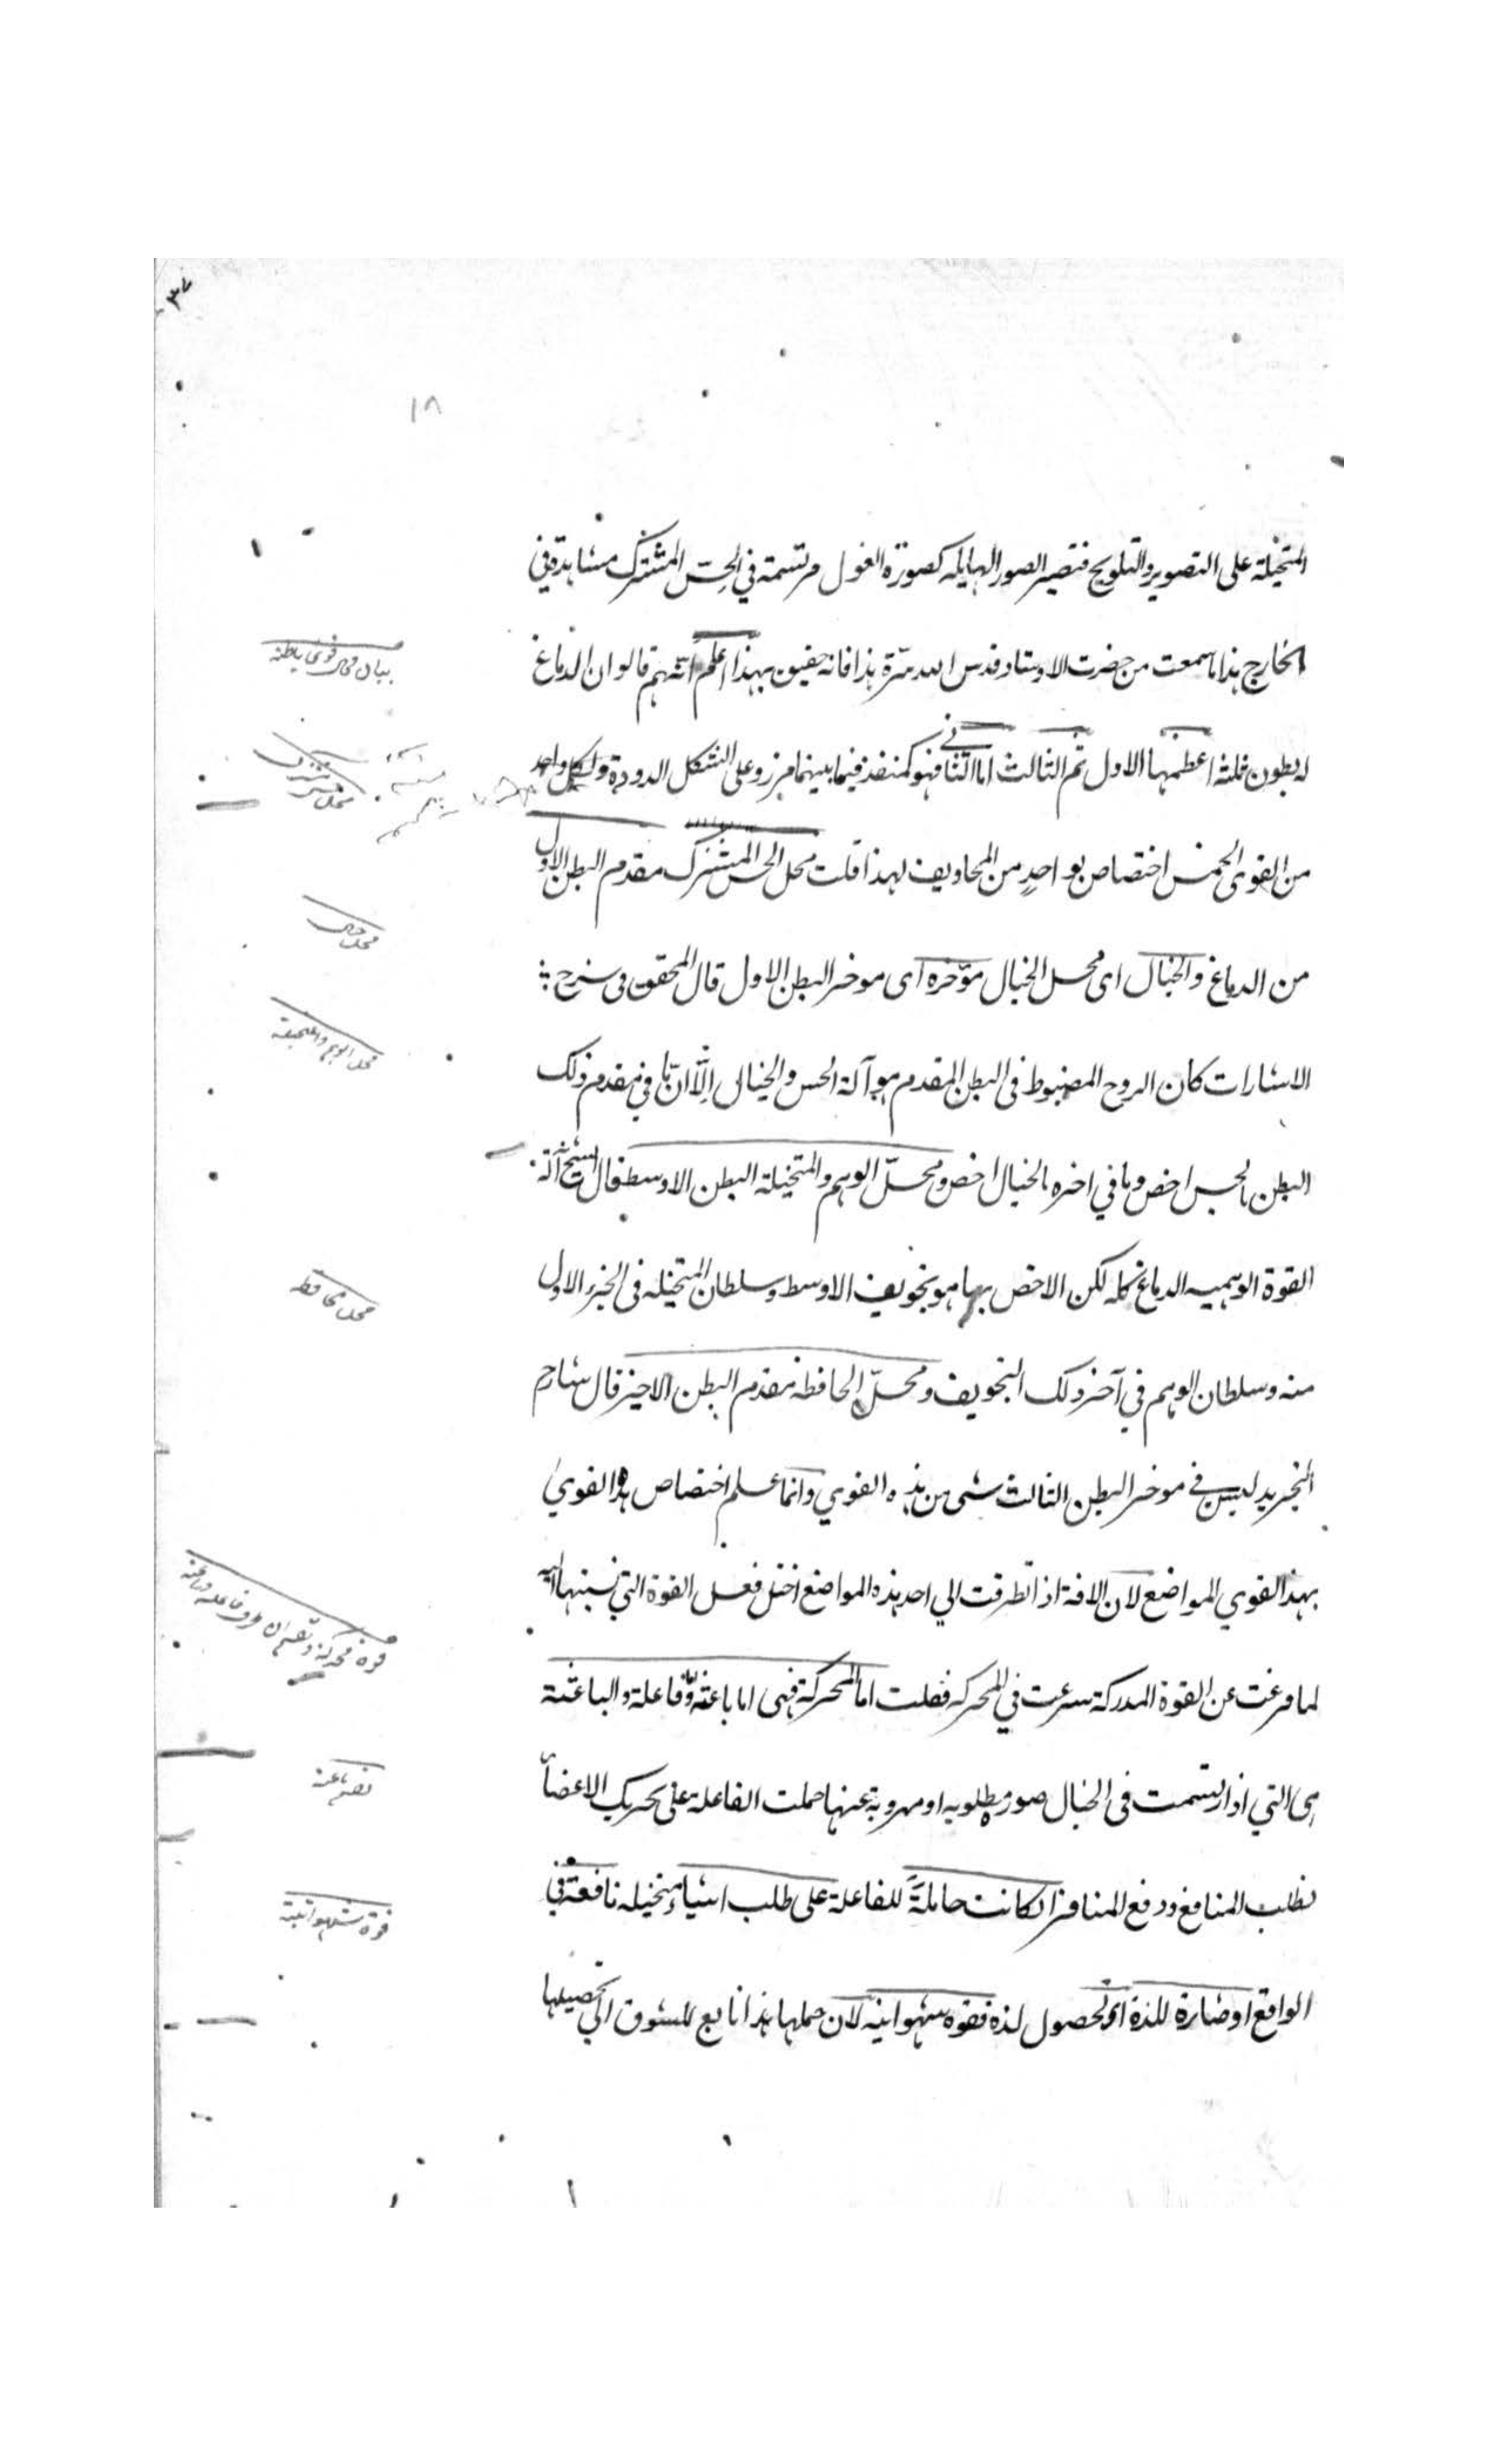 ١٨
المتخيلة على التصوير والتلويح فتصير الصور الهايله كصورة الغول مرتسمة في الحسّ المشترك مشاهدة في
الخارج هذا ما سمعت من حضرت الاوستاد قدس الله سرّه هذا فانه حقيق بهذا اعلم انهم قالوا ان الدماغ
له بطون ثلثة اعظمها الاول ثم الثالث اما الثنا في فهو كمنفذ فيما بينهما مزرد على الشكل الدودة ولكل واحد
من القوى الخمس اختصاص بواحدٍ من التجاويف لهذا قلت محل الحس المشترك مقدم البطن الاول
من الدماغ والخيال اى محل الخيال مؤخره اى موخر البطن الاول قال المحقق فى شرح
الاشارات كان الروح المصبوط فى البطن المقدم هو آلة الحس والخيال الّا انّ ما في مقدم ذلك
البطن بالحس اخص وما في اخره بالخيال اخص ومحلّ الوهم والمتخيلة البطن الاوسط قال الشيخ آلة
القوة الوهميه الدماغ كله لكن الاخص بها هو تجويف الاوسط وسلطان المتخيله فى الجزء الاول
منه وسلطان الوهم في آخر ذلك التجويف ومحلّ الحافظه مقدم البطن الاخير قال شارح
التجريد ليس في موخر البطن الثالث شى من هذه القوي وانما علم اختصاص هذا القوي
بهذا القوي المواضع لان الافة اذا تطرقت الي احد هذه المواضع اختل فعل القوة التي نسبتها اليه
لما فرغت عن القوة المدركة شرعت في المحركه فقلت اما المحركة فهى اما باعثة واما فاعلة والباعثة
هى التي اذا ارتسمت فى الخيال صور مطلوبه او مهروبة عنها حملت الفاعلة على تحريك الاعضاء
لطلب المنافع ودفع المنافر ان كانت حاملةً للفاعلة على طلب اشياء متخيله نافعة في
الواقع او ضارة للذة اى لحصول لذة فقوه شهوانيه لان حملها هذا تابع للشوق الى تحصيلها
بيان محل قوى باطنه
محل حس مشترك
محل خيال
محل الوهم والمتخيلة
محل حافظه
قوة محركه
تعريف باعثه
قوة شهوانية